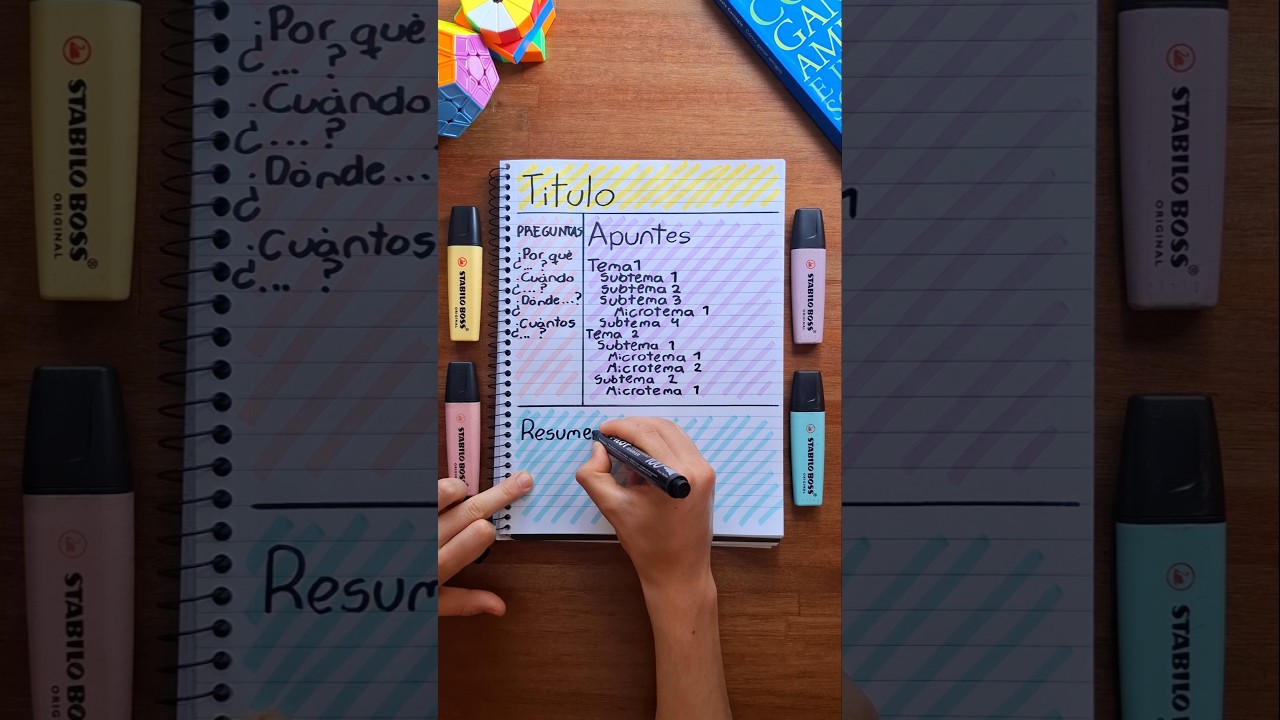 ¿Por què
... ?
Cuàndo
¿... ?
Dònde...
¿
Cuàntos
¿... ?
Resum
STABILO BOSS
ORIGINAL
STABILO BO
ORIG
Titulo
PREGUNTAS
¿Por què
¿... ?
Cuàndo
¿... ?
¿Dònde...?
¿
¿Cuàntos
¿... ?
Apuntes
Tema 1
Subtema 1
Subtema 2
Subtema 3
Microtema 1
Subtema 4
Tema 2
Subtema 1
Microtema 1
Microtema 2
Subtema 2
Microtema 1
Resume
STABILO BOSS
ORIGINAL
STABILO BOSS
STABILO BOSS
ORIGINAL
STABILO BOSS
ORIGINAL
100
GA
AM
ES
1
STABILO BOSS
ORIGINAL
STABILO